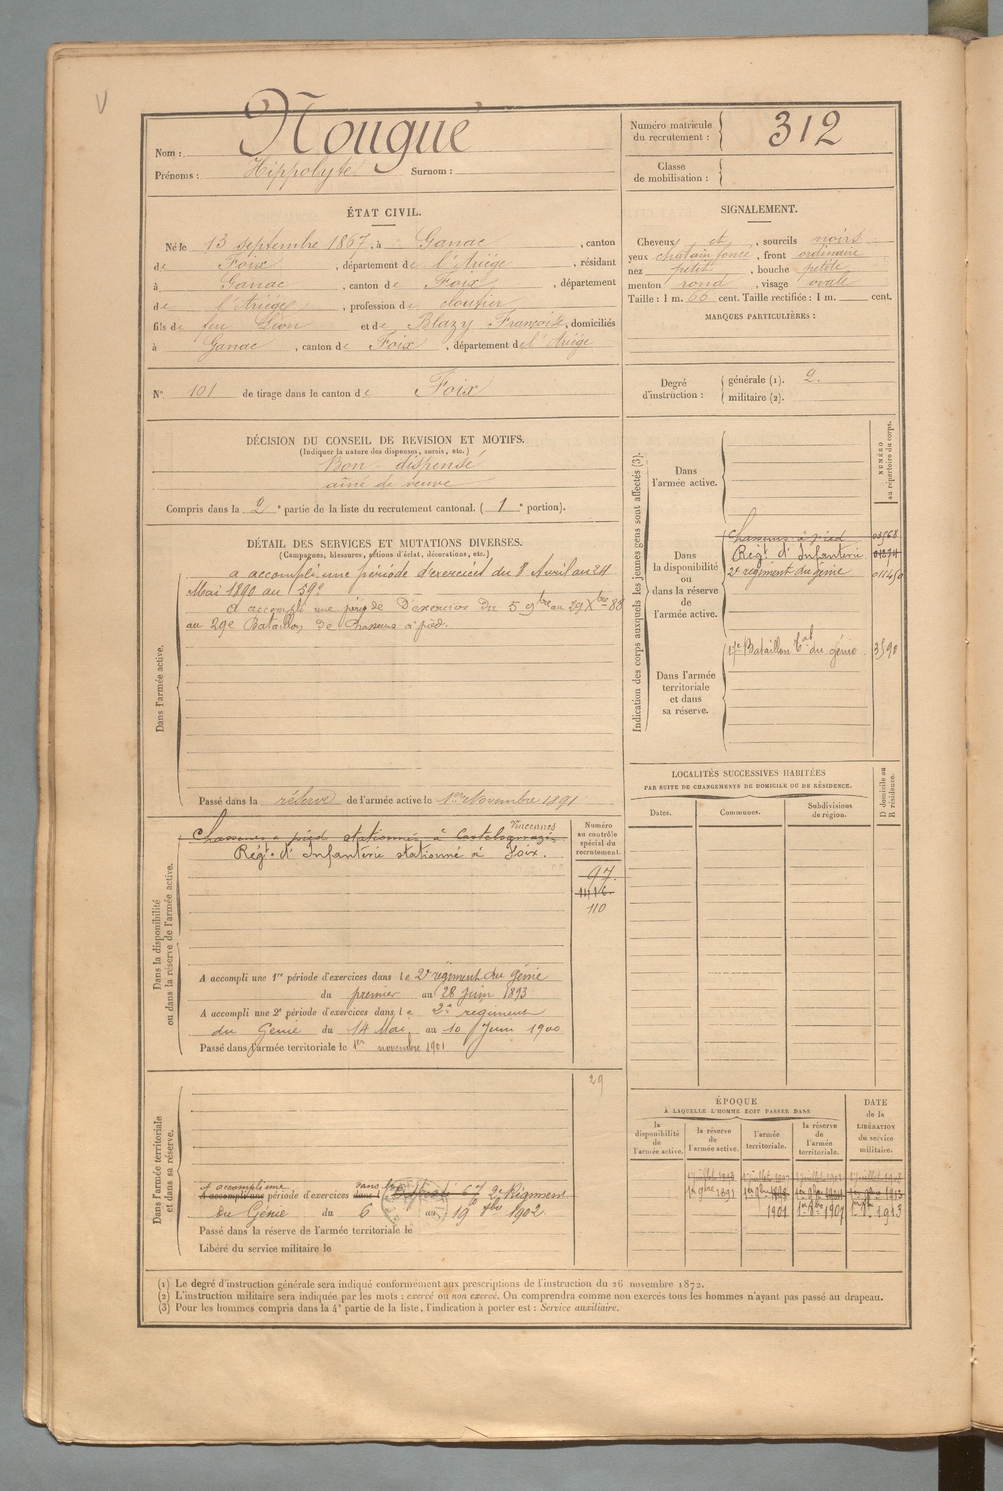 Nom : Nougué
Prénoms : Hippolyte Surnom :
Numéro matricule du recrutement : 312
Classe de mobilisation :
ÉTAT CIVIL.
Né le 13 septembre 1867, à Ganac, canton
de Foix, département de l'Ariége, résidant
à Ganac, canton de Foix, département
de l'Ariége, profession de cloutier
fils de feu Léon et de Blazy Françoise, domiciliés
à Ganac, canton de Foix, département de l'Ariége
N° 101 de tirage dans le canton de Foix
SIGNALEMENT.
Cheveux et, sourcils noirs
yeux chatain foncé, front ordinaire
nez petit, bouche petite
menton rond, visage ovale
Taille : 1 m. 66 cent. Taille rectifiée : 1 m. cent.
MARQUES PARTICULIÈRES :
Degré d'instruction : générale (1). 2.
militaire (2).
DÉCISION DU CONSEIL DE REVISION ET MOTIFS.
(Indiquer la nature des dispenses, sursis, etc.)
Bon dispensé
aîné de veuve
Compris dans la 2e partie de la liste du recrutement cantonal. (1e portion).
DÉTAIL DES SERVICES ET MUTATIONS DIVERSES.
(Campagnes, blessures, actions d'éclat, décorations, etc.)
Dans l'armée active.
a accompli une période d'exercices du 8 Avril au 24
Mai 1890 au 59e
A accompli une période d'exercices du 5 9bre au 29 Xbre 88
au 29e Bataillon de Chasseurs à pied.
Passé dans la réserve de l'armée active le 1er Novembre 1891
Indication des corps auxquels les jeunes gens sont affectés (3).
NUMÉRO au répertoire du corps.
Dans l'armée active.
Dans la disponibilité ou dans la réserve de l'armée active.
Chasseurs à pied
Régt d'Infanterie
2e régiment du génie
Dans l'armée territoriale et dans sa réserve.
17e Bataillon tal du génie 3590
LOCALITÉS SUCCESSIVES HABITÉES
PAR SUITE DE CHANGEMENTS DE DOMICILE OU DE RÉSIDENCE.
Dates. Communes. Subdivisions de région. D domicile ou R résidence.
Dans la disponibilité ou dans la réserve de l'armée active.
Numéro au contrôle spécial du recrutement.
Vincennes
Chasseurs à pied stationnés à Castelsarrazin
Régt d'Infanterie stationné à Foix.
97.
1416
110
A accompli une 1re période d'exercices dans le 2e régiment du génie
du premier au 28 Juin 1893
A accompli une 2e période d'exercices dans le 2e regiment
du Génie du 14 Mai au 10 Juin 1900
Passé dans l'armée territoriale le 1er novembre 1901
29
Dans l'armée territoriale et dans sa réserve.
A accompli une dans le
A accompli une période d'exercices dans l 2e Régiment
du Génie du 6 au 19 8bre 1902
Passé dans la réserve de l'armée territoriale le
Libéré du service militaire le
ÉPOQUE
À LAQUELLE L'HOMME DOIT PASSER DANS
la disponibilité de l'armée active. la réserve de l'armée active. l'armée territoriale. la réserve de l'armée territoriale.
DATE de la LIBÉRATION du service militaire.
1er 9bre 1891
1901 1er 9bre 1907 1er 9bre 1913
(1) Le degré d'instruction générale sera indiqué conformément aux prescriptions de l'instruction du 26 novembre 1872.
(2) L'instruction militaire sera indiquée par les mots : exercé ou non exercé. On comprendra comme non exercés tous les hommes n'ayant pas passé au drapeau.
(3) Pour les hommes compris dans la 4e partie de la liste, l'indication à porter est : Service auxiliaire.